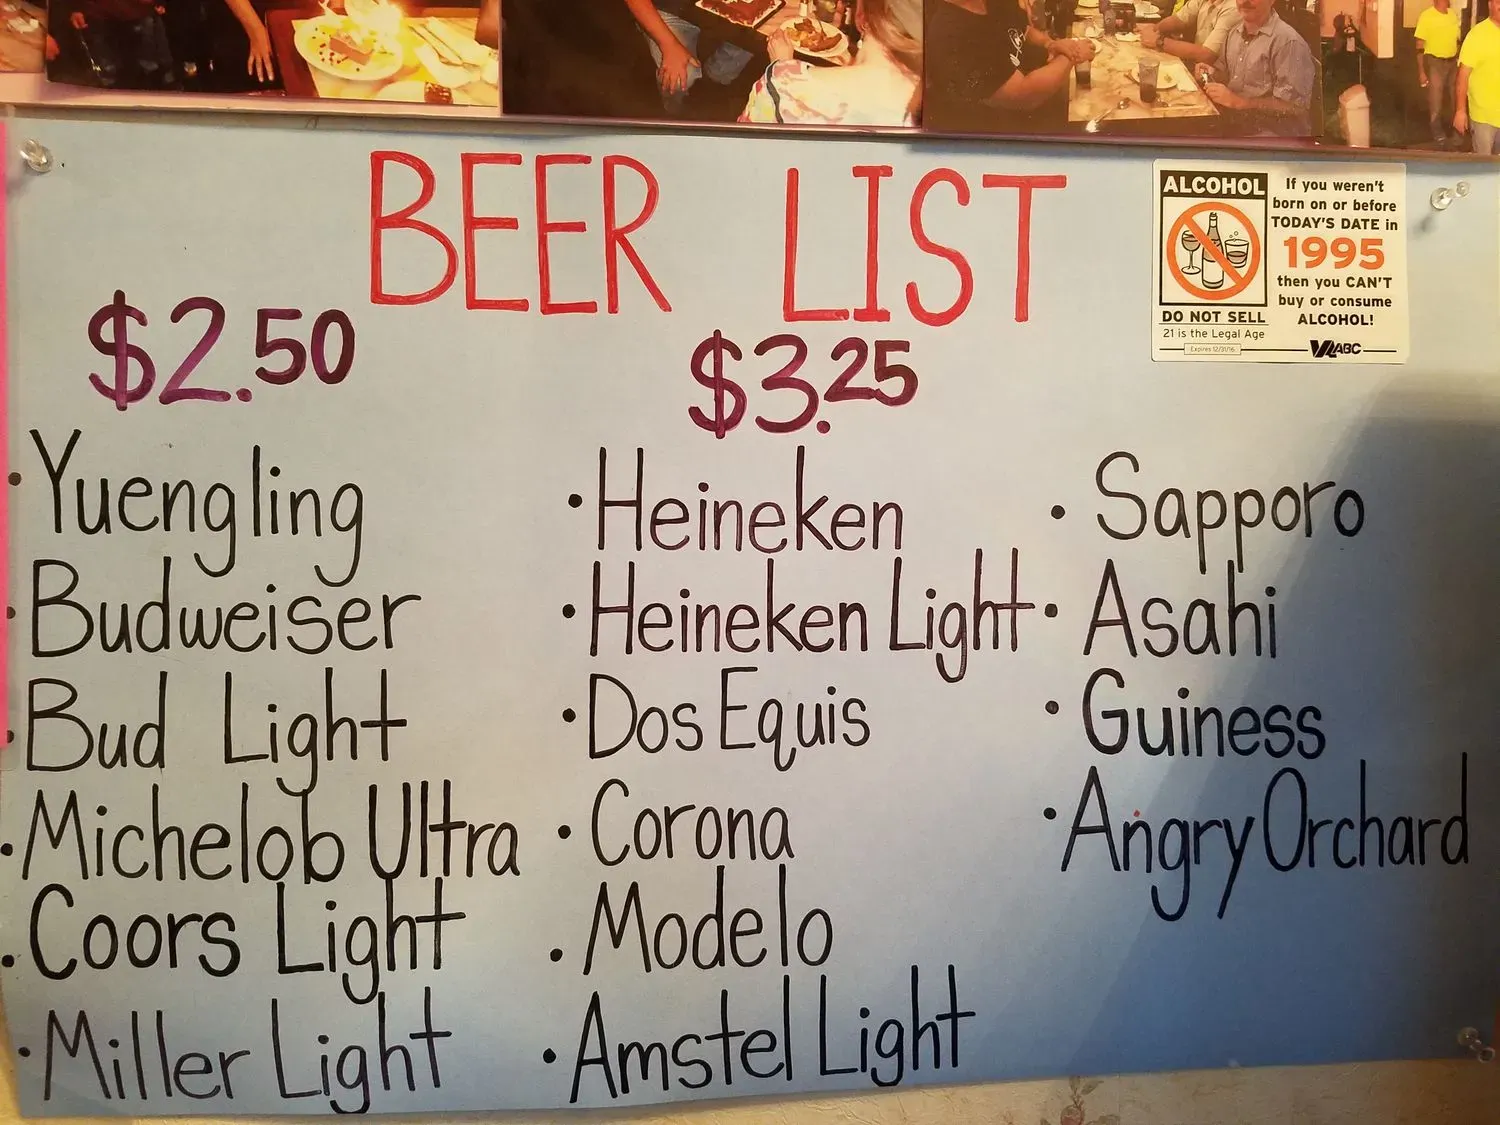 BEER LIST
ALCOHOL
DO NOT SELL
21 is the Legal Age
Expires 12/31/16
If you weren't
born on or before
TODAY'S DATE in
1995
then you CAN'T
buy or consume
ALCOHOL!
ABC
$2.50
· Yuengling
· Budweiser
· Bud Light
· Michelob Ultra
· Coors Light
· Miller Light
$3.25
· Heineken
· Heineken Light
· Dos Equis
· Corona
· Modelo
· Amstel Light
· Sapporo
· Asahi
· Guiness
· Angry Orchard